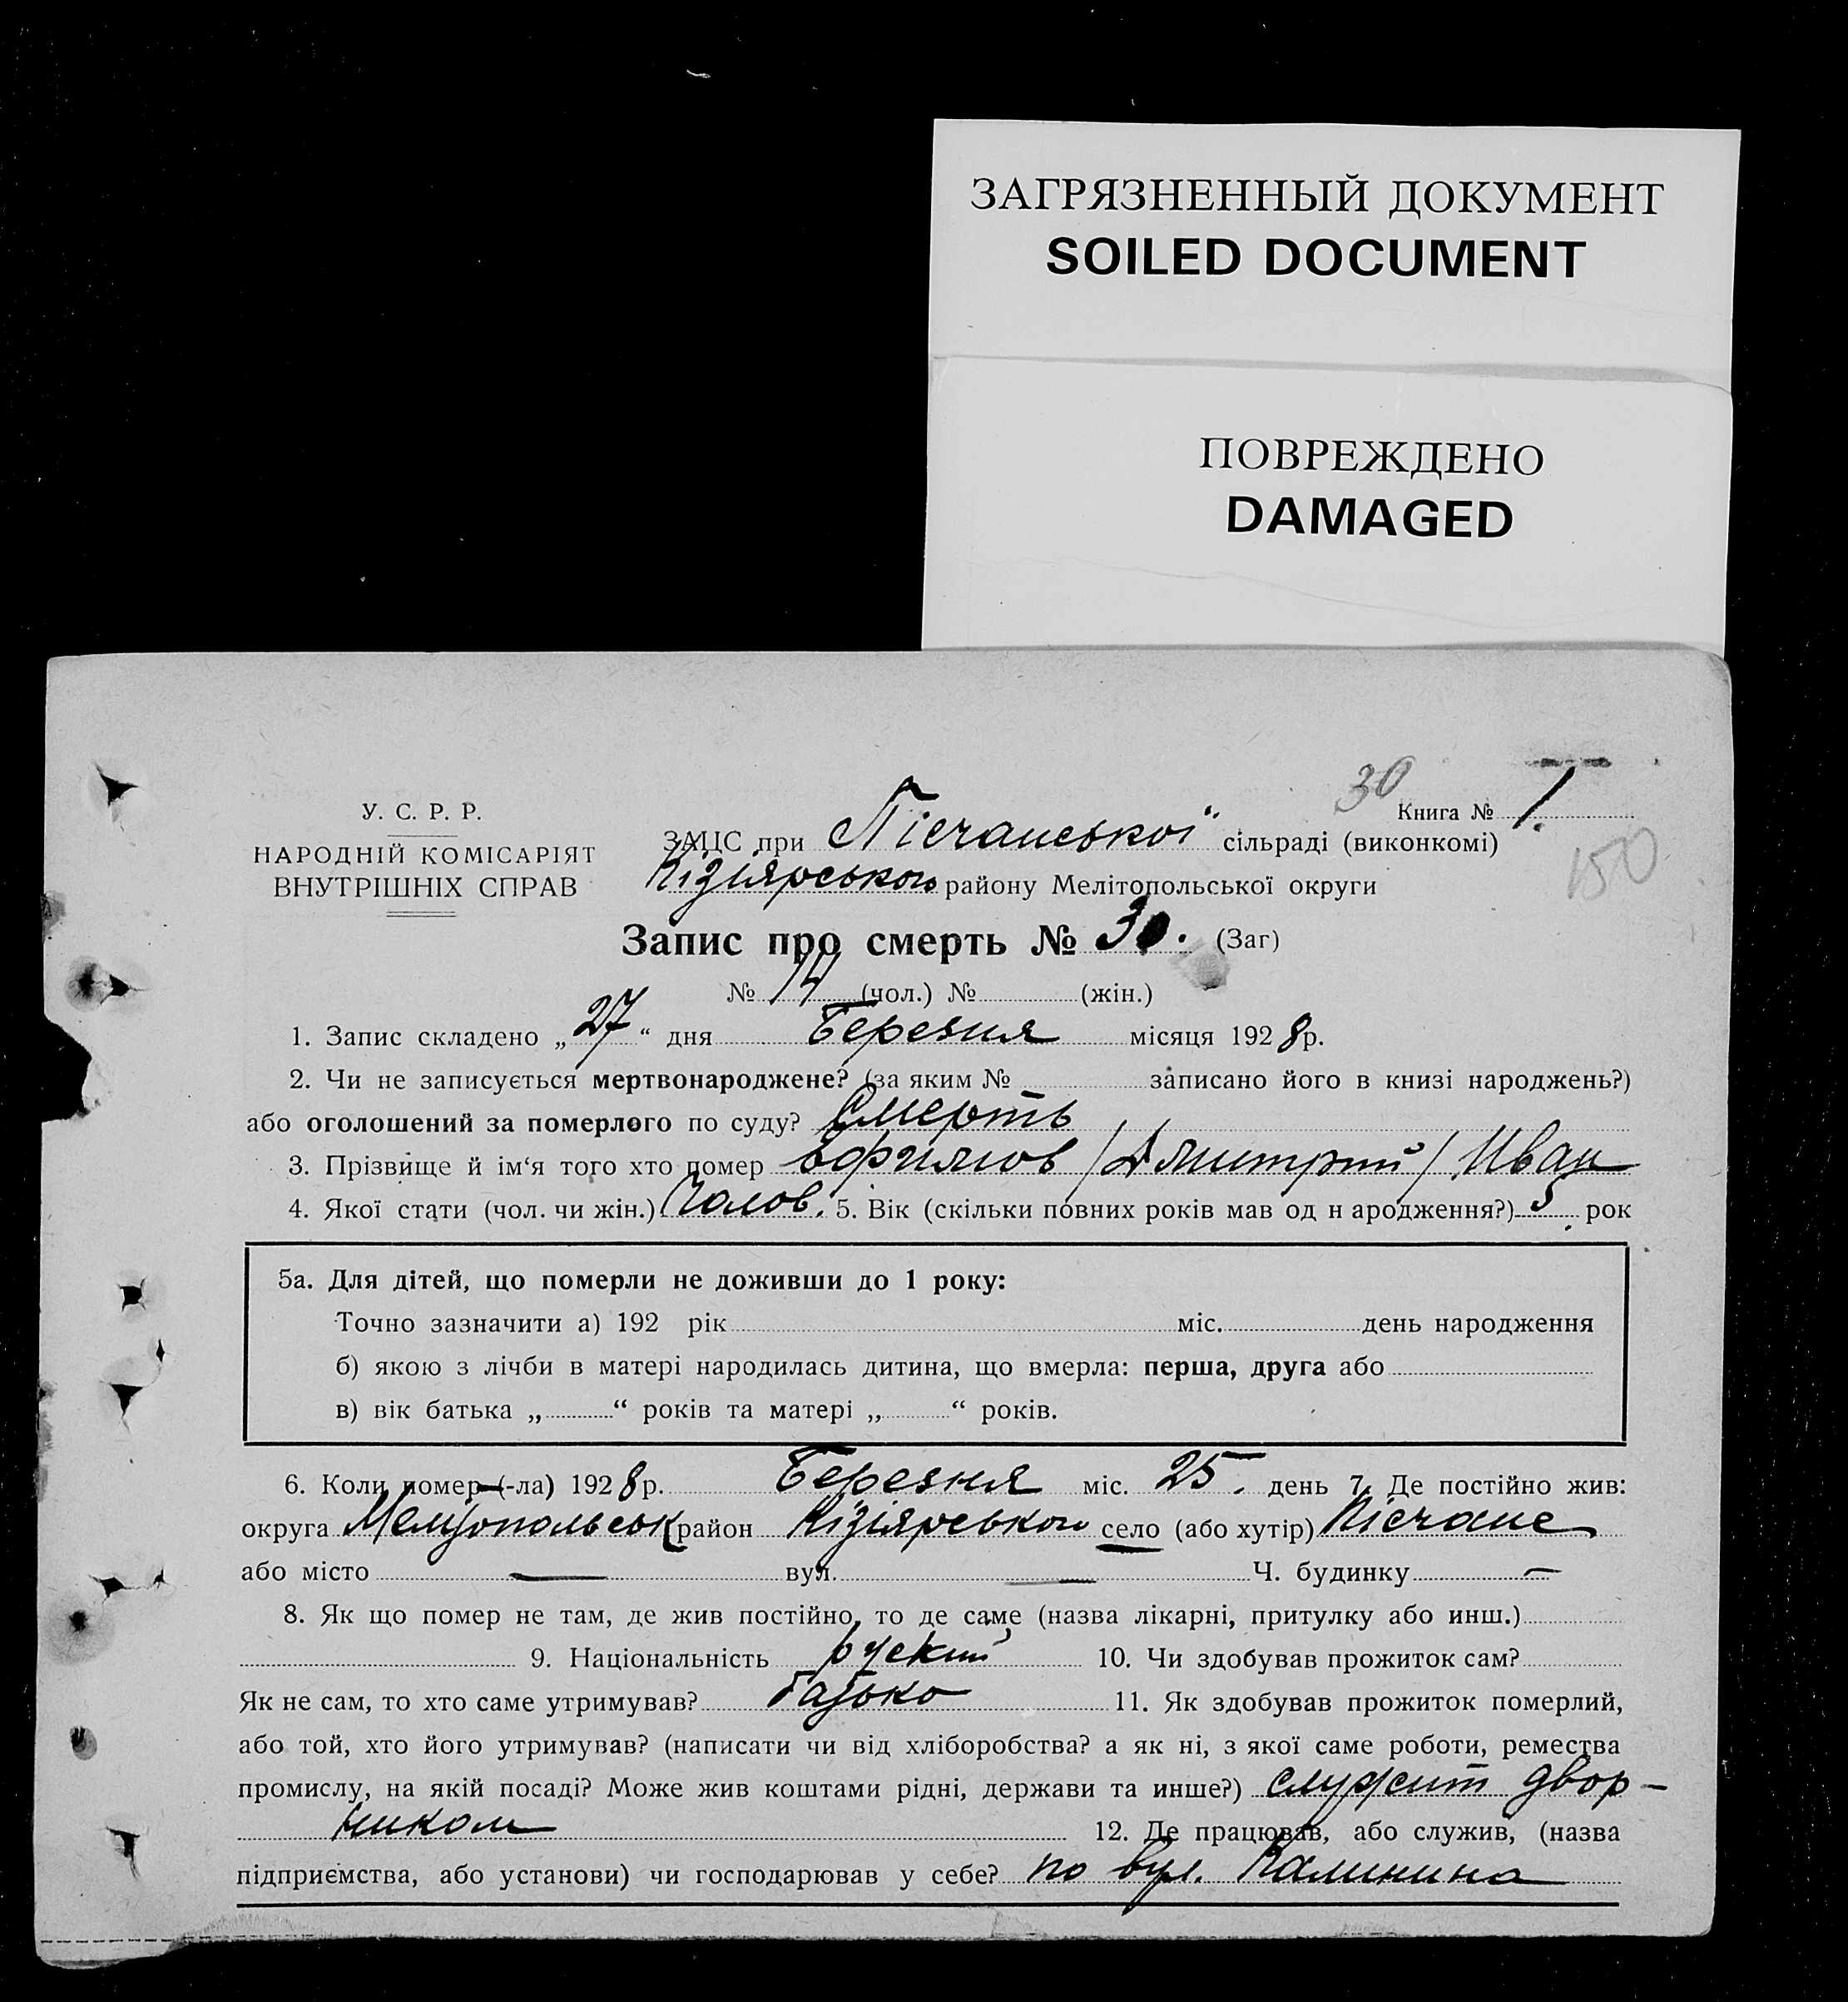 ЗАГРЯЗНЕННЫЙ ДОКУМЕНТ
SOILED DOCUMENT
ПОВРЕЖДЕНО
DAMAGED
30
Книга № 1.
150
У. С. Р. Р.
НАРОДНІЙ КОМІСАРІЯТ
ВНУТРІШНІХ СПРАВ
ЗАЦС при Пісчанської сільраді (виконкомі)
Кізіярського району Мелітопольської округи
Запис про смерть № 30. (Заг)
№ 14 (чол.) № (жін.)
1. Запис складено „27“ дня Березня місяця 1928 р.
2. Чи не записується мертвонароджене? (за яким № записано його в книзі народжень?)
або оголошений за померлого по суду? Смерть
3. Прізвище й ім‘я того хто помер /Дмитрий/ Иван
4. Якої стати (чол. чи жін.) Чолов. 5. Вік (скільки повних років мав од н ародження?) 5 рок
5а. Для дітей, що померли не доживши до 1 року:
Точно зазначити а) 192 рік міс. день народження
б) якою з лічби в матері народилась дитина, що вмерла: перша, друга або
в) вік батька „ “ років та матері „ “ років.
6. Коли помер (-ла) 1928 р. Березня міс. 25. день 7. Де постійно жив:
округа Мелітопольськ район Кізіярського село (або хутір) Пісчане
або місто — вул. — Ч. будинку —
8. Як що помер не там, де жив постійно, то де саме (назва лікарні, притулку або инш.)
9. Національність руский 10. Чи здобував прожиток сам?
Як не сам, то хто саме утримував? батько 11. Як здобував прожиток померлий,
або той, хто його утримував? (написати чи від хліборобства? а як ні, з якої саме роботи, ремества
промислу, на якій посаді? Може жив коштами рідні, держави та инше?) служит двор-
ником 12. Де працював, або служив, (назва
підприємства, або установи) чи господарював у себе? по вул. Калинина